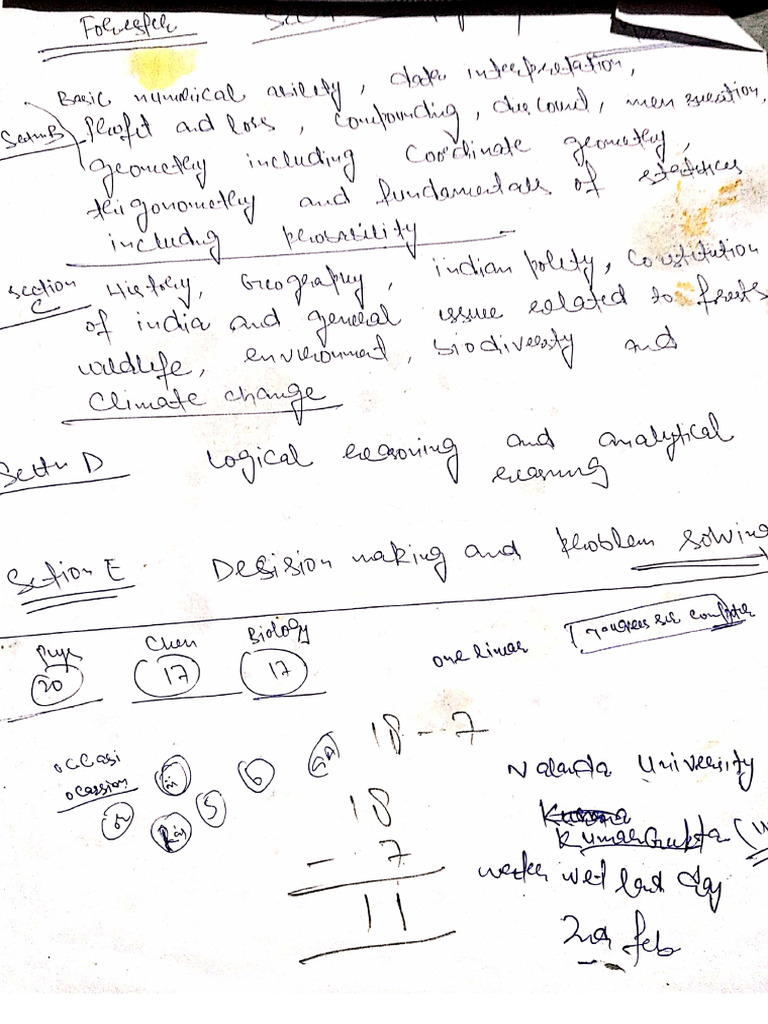 Forester
Basic numerical ability, data interpretation,
Section B Profit and loss, compounding, discount, mensuration,
geometry including Coordinate geometry,
trigonometry and fundamentals of statistics
including probability
Section C History, Geography, indian polity, Constitution
of india and general issue related to forests
wildlife, environment, biodiversity and
Climate change
Secttn D Logical reasoning and analytical
reasoning
Section E Decision making and problem solving
Phy Chem Biology
20 17 17 one linear
18 - 7
occasi
ocassion 5 6
18
- 7
11
Nalanda University
Kumar Gupta
last day
2nd feb